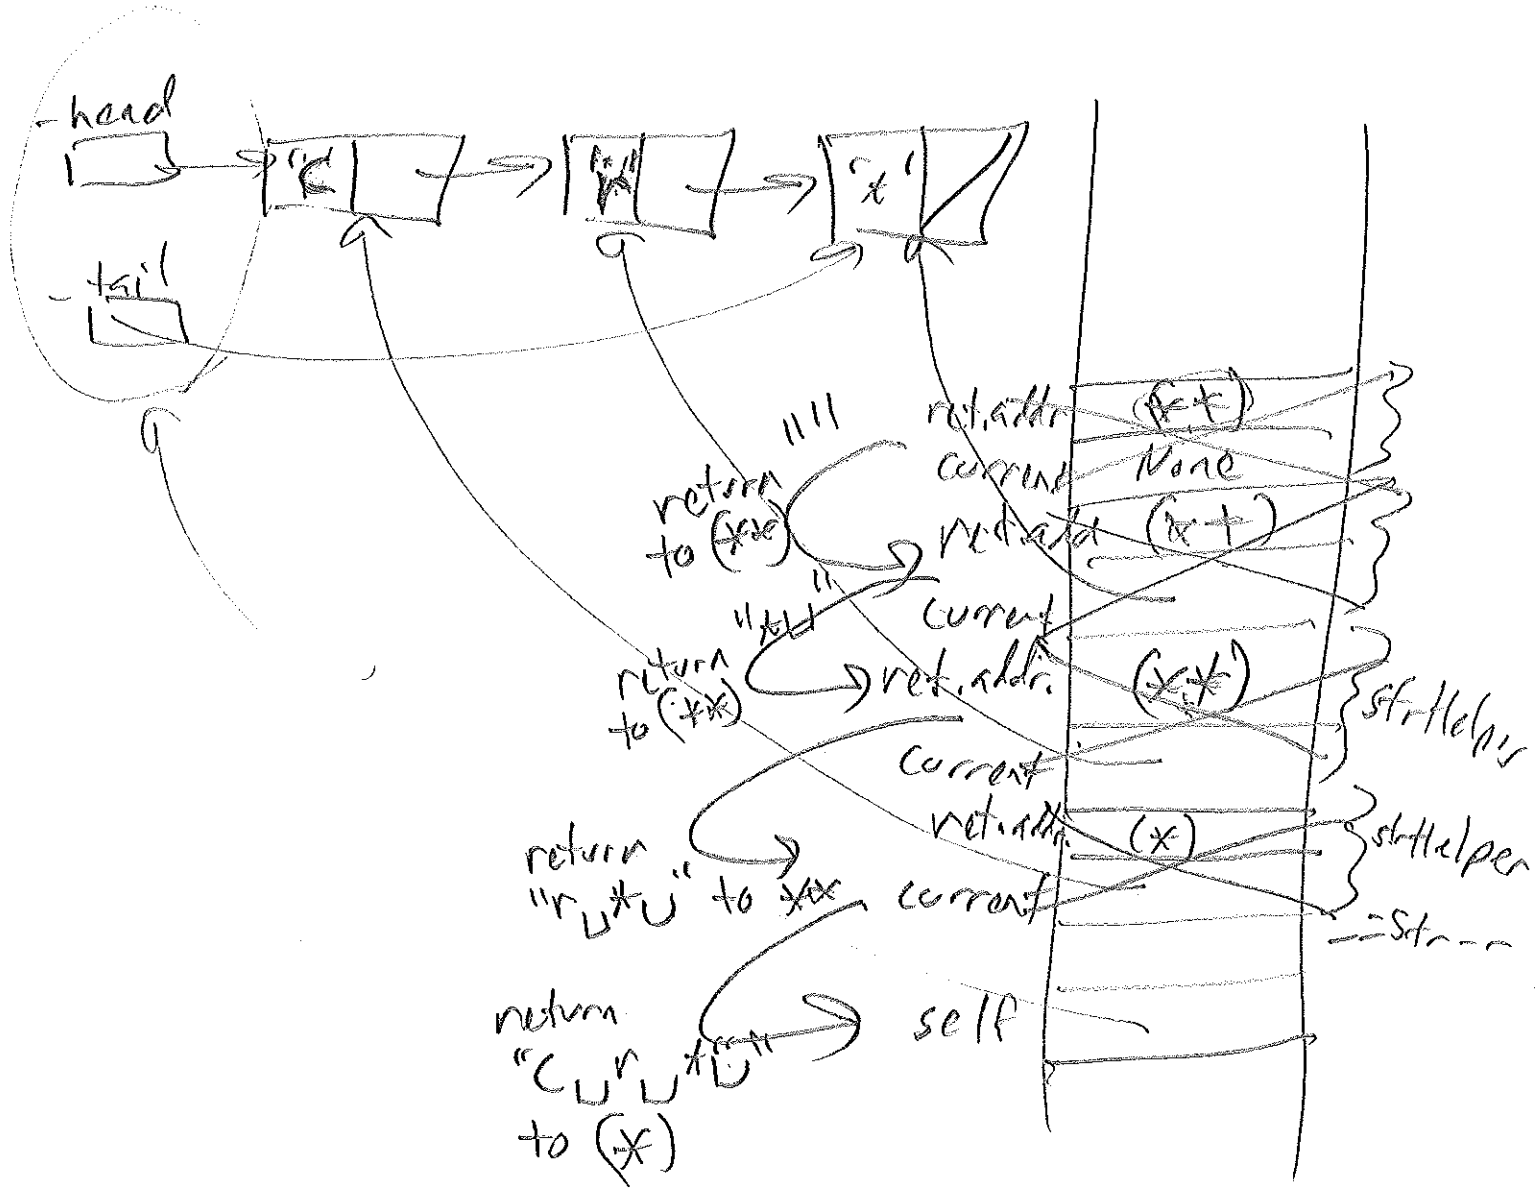 -head
-tail
'x'
" "
ret.addr (**)
current None
return
to (**)
ret.add (**)
current
return
to (**)
ret.addr. (**)
current
strHelper
ret.addr. (*)
strHelper
return
"r␣*␣" to **
current
__str__
self
return
"c␣r␣*␣"
to (*)